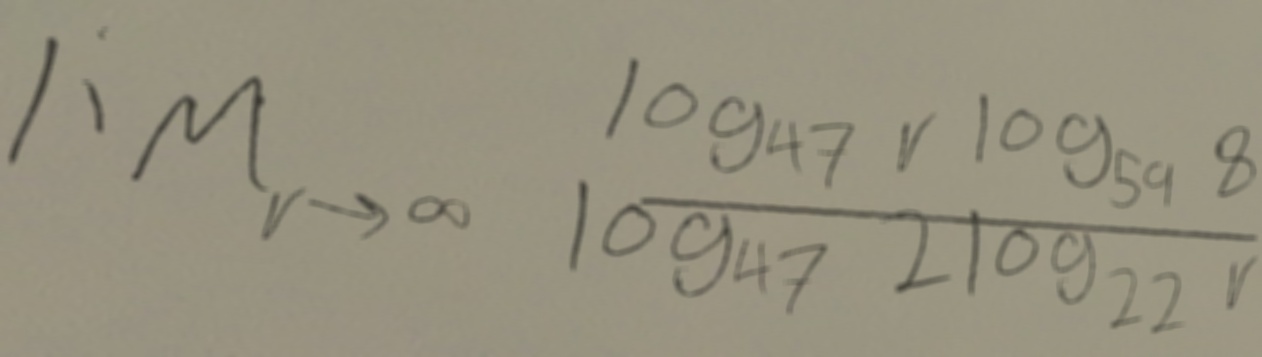 lim r→∞ log₄₇ r log₅₉ 8
log₄₇ 2 log₂₂ r